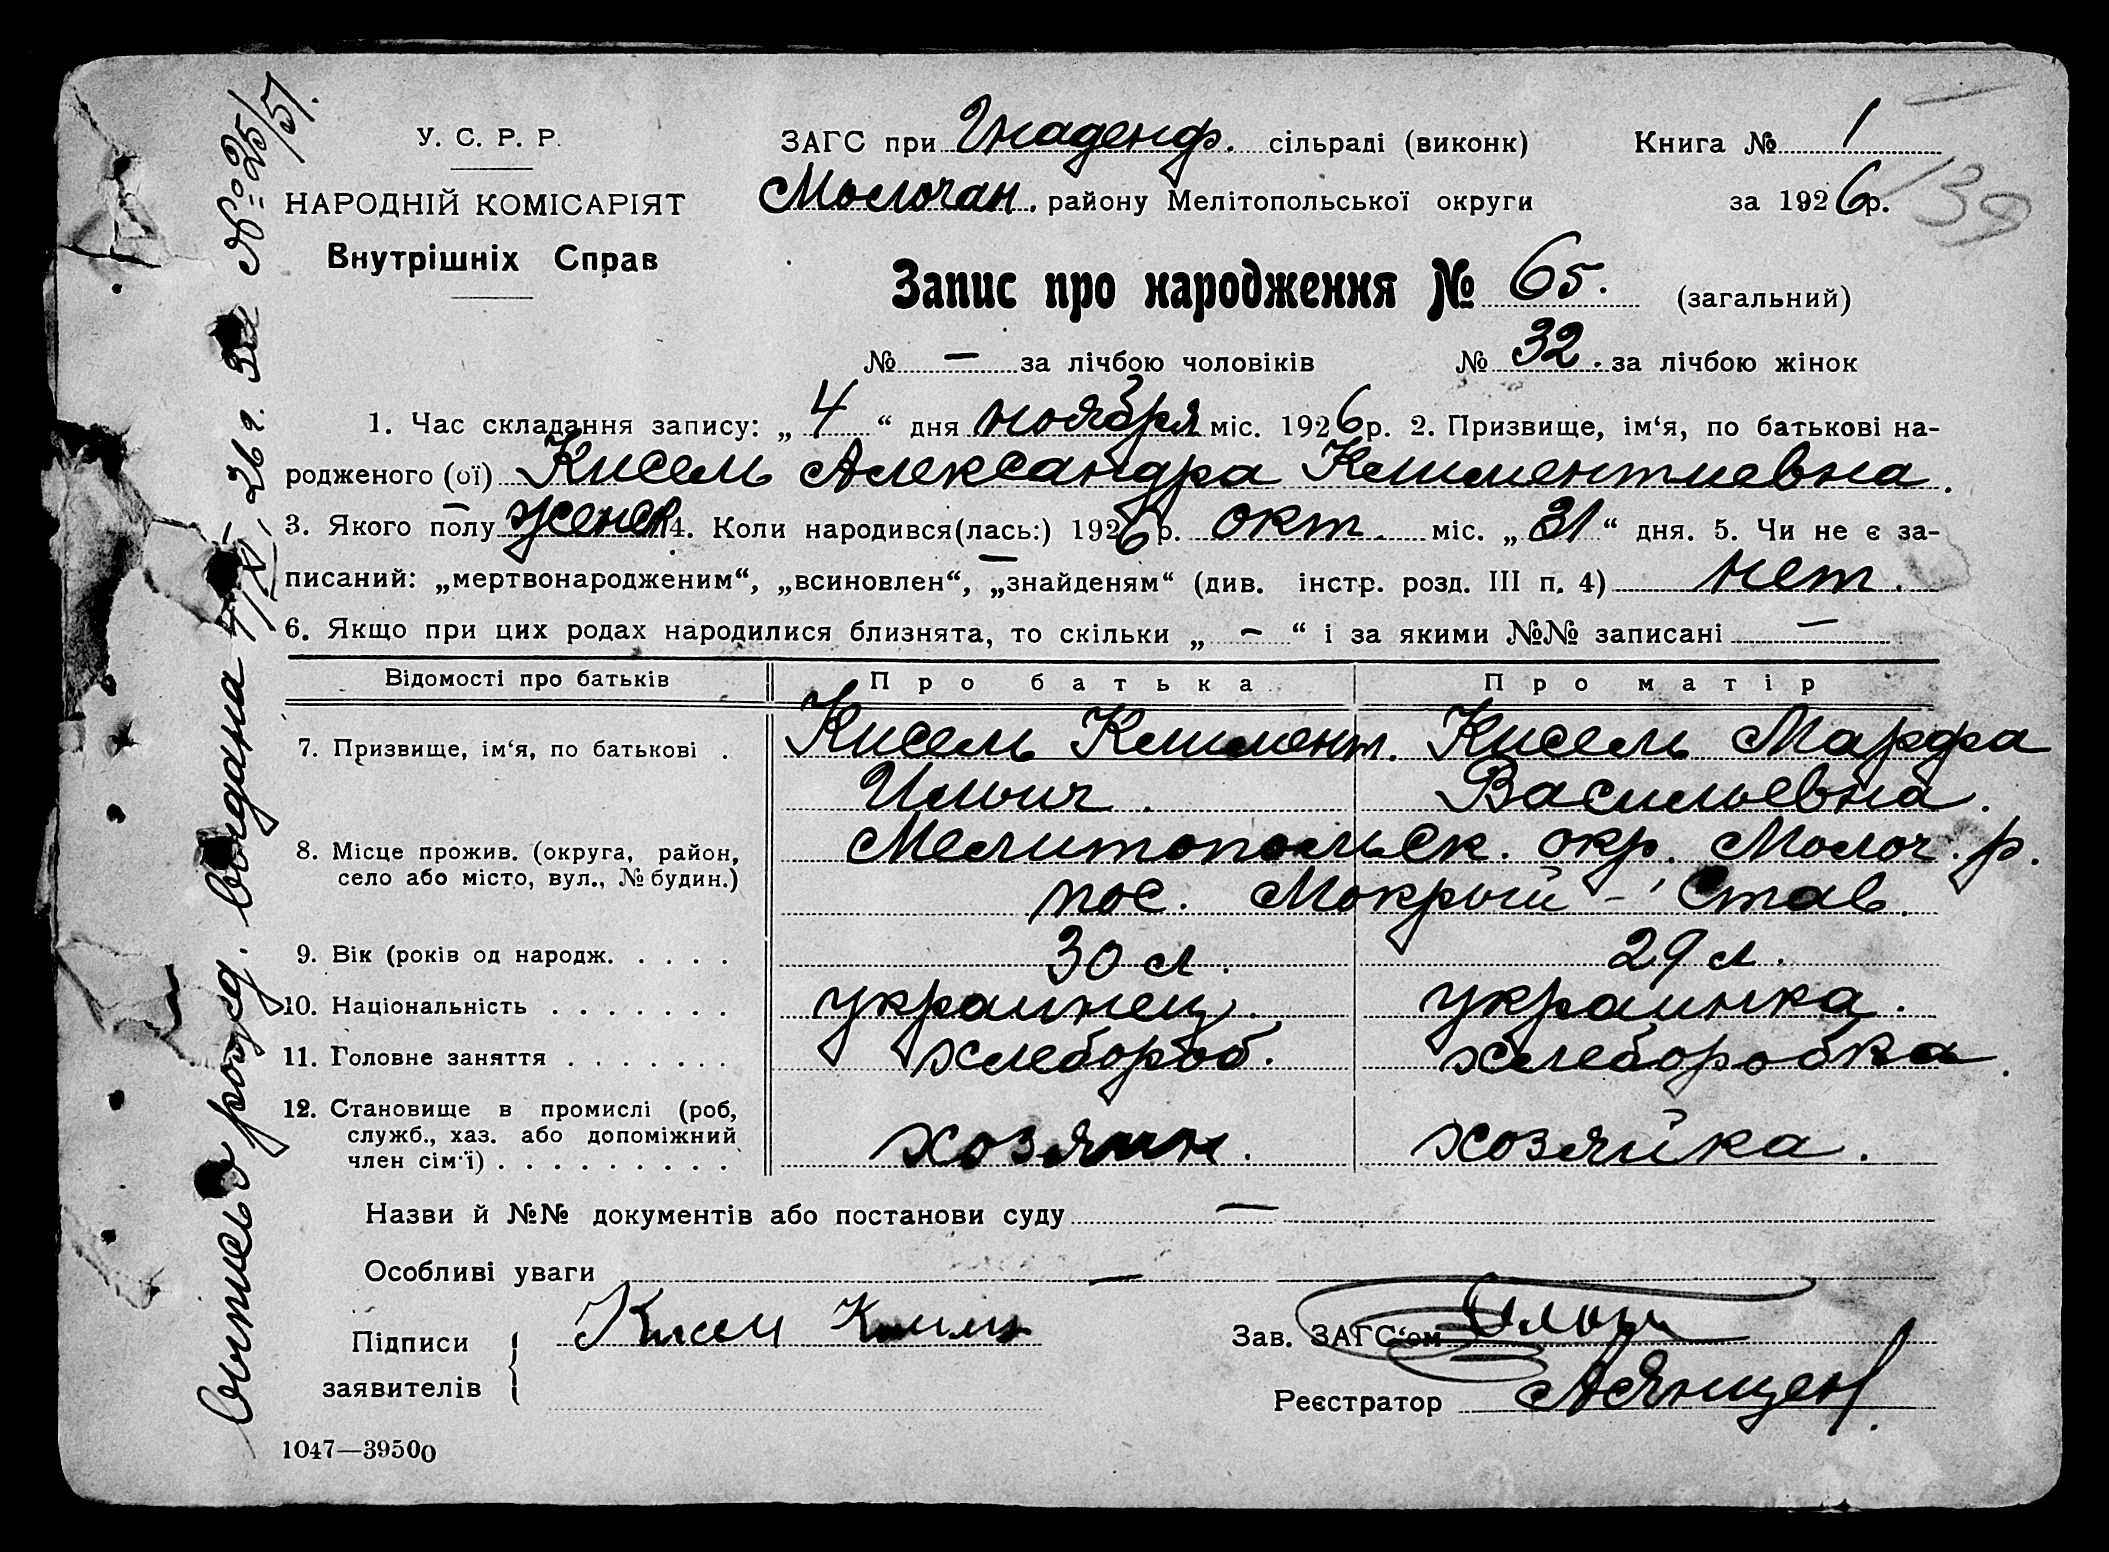 У. С. Р. Р.
НАРОДНІЙ КОМІСАРІЯТ
Внутрішніх Справ
ЗАГС при Гнаденф. сільраді (виконк)
Молочан. району Мелітопольської округи
Книга № 1
за 1926 р.
139
Запис про народження № 65. (загальний)
№ — за лічбою чоловіків № 32. за лічбою жінок
1. Час складання запису: „ 4 “ дня ноября міс. 1926 р. 2. Призвище, ім‘я, по батькові на-
родженого (ої) Кисель Александра Климентиевна.
3. Якого полу женск 4. Коли народився(лась:) 1926 р. окт. міс. „ 31 “ дня. 5. Чи не є за-
писаний: „мертвонародженим“, „всиновлен“, „знайденям“ (див. інстр. розд. III п. 4) нет.
6. Якщо при цих родах народилися близнята, то скільки „ — “ і за якими №№ записані —
Відомості про батьків Про батька Про матір
7. Призвище, ім‘я, по батькові . Кисель Климент. Кисель Марфа
Ильич. Васильевна.
8. Місце прожив. (округа, район, Мелитопольск. окр. Молоч. р.
село або місто, вул., № будин.) пос. Мокрый - Став.
9. Вік (років од народж. . . . . 30 л. 29 л.
10. Національність . . . . . . . украинец. украинка.
11. Головне заняття . . . . . . . хлебороб. хлеборобка.
12. Становище в промислі (роб,
служб., хаз. або допоміжний хозяин. хозяйка.
член сім‘ї) . . . . . . . . . .
Назви й №№ документів або постанови суду —
Особливі уваги —
Підписи
заявителів
Кисель Клим
Зав. ЗАГС‘ом
Реєстратор А Янцен
1047—39500
Выпись о рожд. выдана 7/XI 26 г. за №: 25/51.